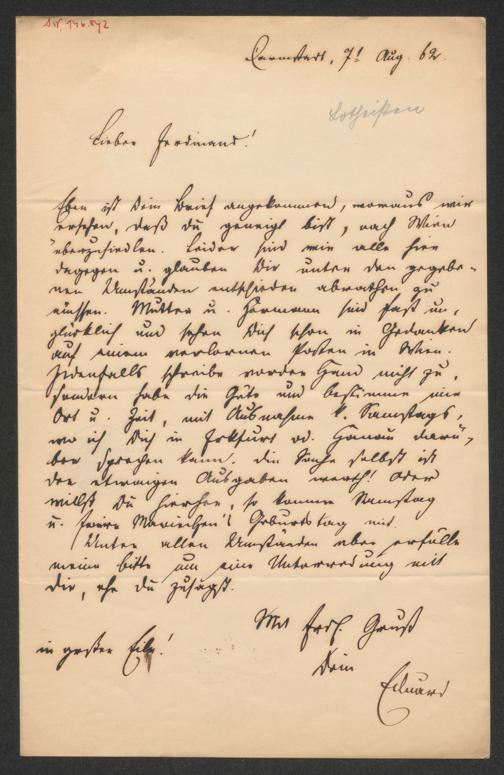 Darmstadt, 7! Aug. 62.
Lotheißen
Lieber Ferdinand!
Eben ist Dein Brief angekommen, woraus wir
ersehen, daß du geneigt bist, nach Wien
überzusiedlen. Leider sind wir alle hier
dagegen u. glauben Dir unter den gegebe-
nen Umständen entschieden abrathen zu
müssen. Mutter u. Hermann sind fast un-
glücklich und sehen Dich schon in Gedanken
auf einem verlornen Posten in Wien.
Jedenfalls schreibe vorder Hand nicht zu,
sondern habe die Güte und bestimme mir
Ort u. Zeit, mit Ausnahme d. Samstags,
wo ich Dich in Frkfurt od. Hanau darü-
ber sprechen kann. Die Sache selbst ist
der etwaigen Ausgaben werth! Oder
willst Du hierher, so komme Samstag
u. feire Mariechen's Geburtstag mit.
Unter allen Umständen aber erfülle
meine bitte um eine Unterredung mit
Dir, ehe du zusagst.
Mit frdl. Gruß
in großer Eile!
Dein
Eduard